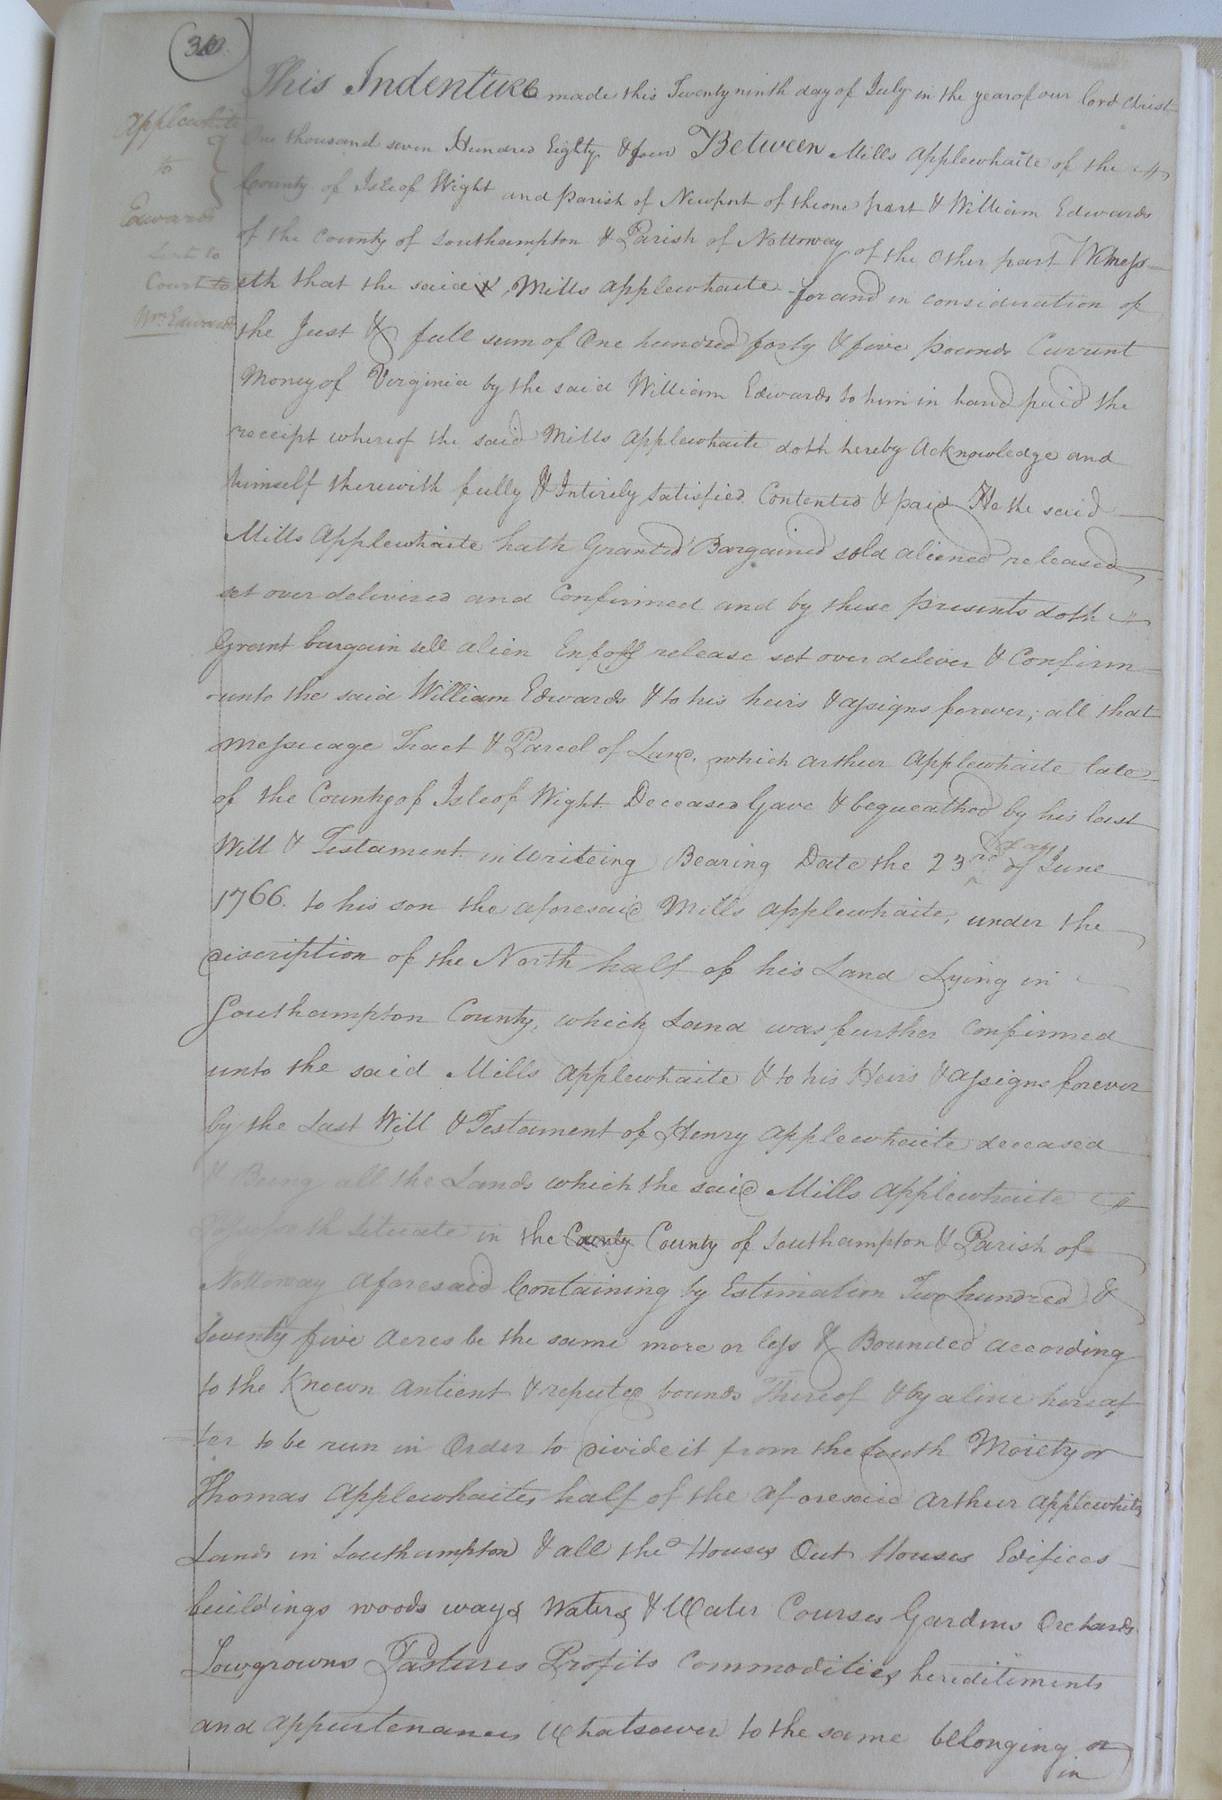 This Indenture made this Twenty ninth day of July in the year of our lord christ
One thousand seven Hundred Eighty & four Between Mills Applewhaite of the
County of Isle of Wight and parish of Newport of the one part & William Edwards
of the County of Southampton & Parish of Nottoway of the other part Witness
eth that the said Mills Applewhaite for and in consideration of
the Just & full sum of One hundred forty & five pounds Current
Money of Virginia by the said William Edwards to him in hand paid the
receipt whereof the said Mills Applewhaite doth hereby Acknowledge and
himself therewith fully & Intirely satisfied Contented & paid He the said
Mills Applewhaite hath Granted Bargained sold aliened released
set over delivered and Confirmed and by these presents doth
Grant bargain sell alien Enfoff release set over deliver & Confirm
unto the said William Edwards & to his heirs & assigns forever; all that
Messuage Tract & Parcel of Land, which Arthur Applewhaite late
of the County of Isle of Wight Deceased Gave & bequeathed by his last
Will & Testament in Writeing Bearing Date the 23rd day of June
1766. to his son the aforesaid Mills Applewhaite, under the
discription of the North half of his Land Lying in
Southampton County, which Land was further Confirmed
unto the said Mills Applewhaite & to his Heirs & assigns forever
by the Last Will & Testament of Henry Applewhaite deceased
& Being all the Lands which the said Mills Applewhaite
situate in the County County of Southampton & Parish of
Nottoway aforesaid Containing by Estimation Two hundred &
Seventy five Acres be the same more or less & Bounded according
to the Known Antient & reputed bounds Thereof & by a line hereaf
ter to be run in Order to divide it from the South Moiety or
Thomas Applewhaites half of the aforesaid Arthur Applewhits
Lands in Southampton & all the Houses Out Houses Edifices
buildings woods ways Waters & Water Courses Gardens Orchards
Lowgrowns Pastures Profits Commodities hereditiments
and appurtenances Whatsoever to the same belonging or
in
Applewhite
to
Edwards
Sent to
Court to
Wm. Edwards